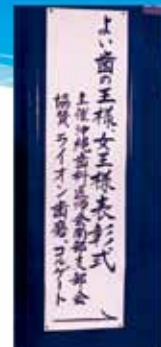 よい歯の王様、女王様表彰式
主催 沖縄歯科医師会南部支部会
協賛 ライオン歯磨、コルゲート